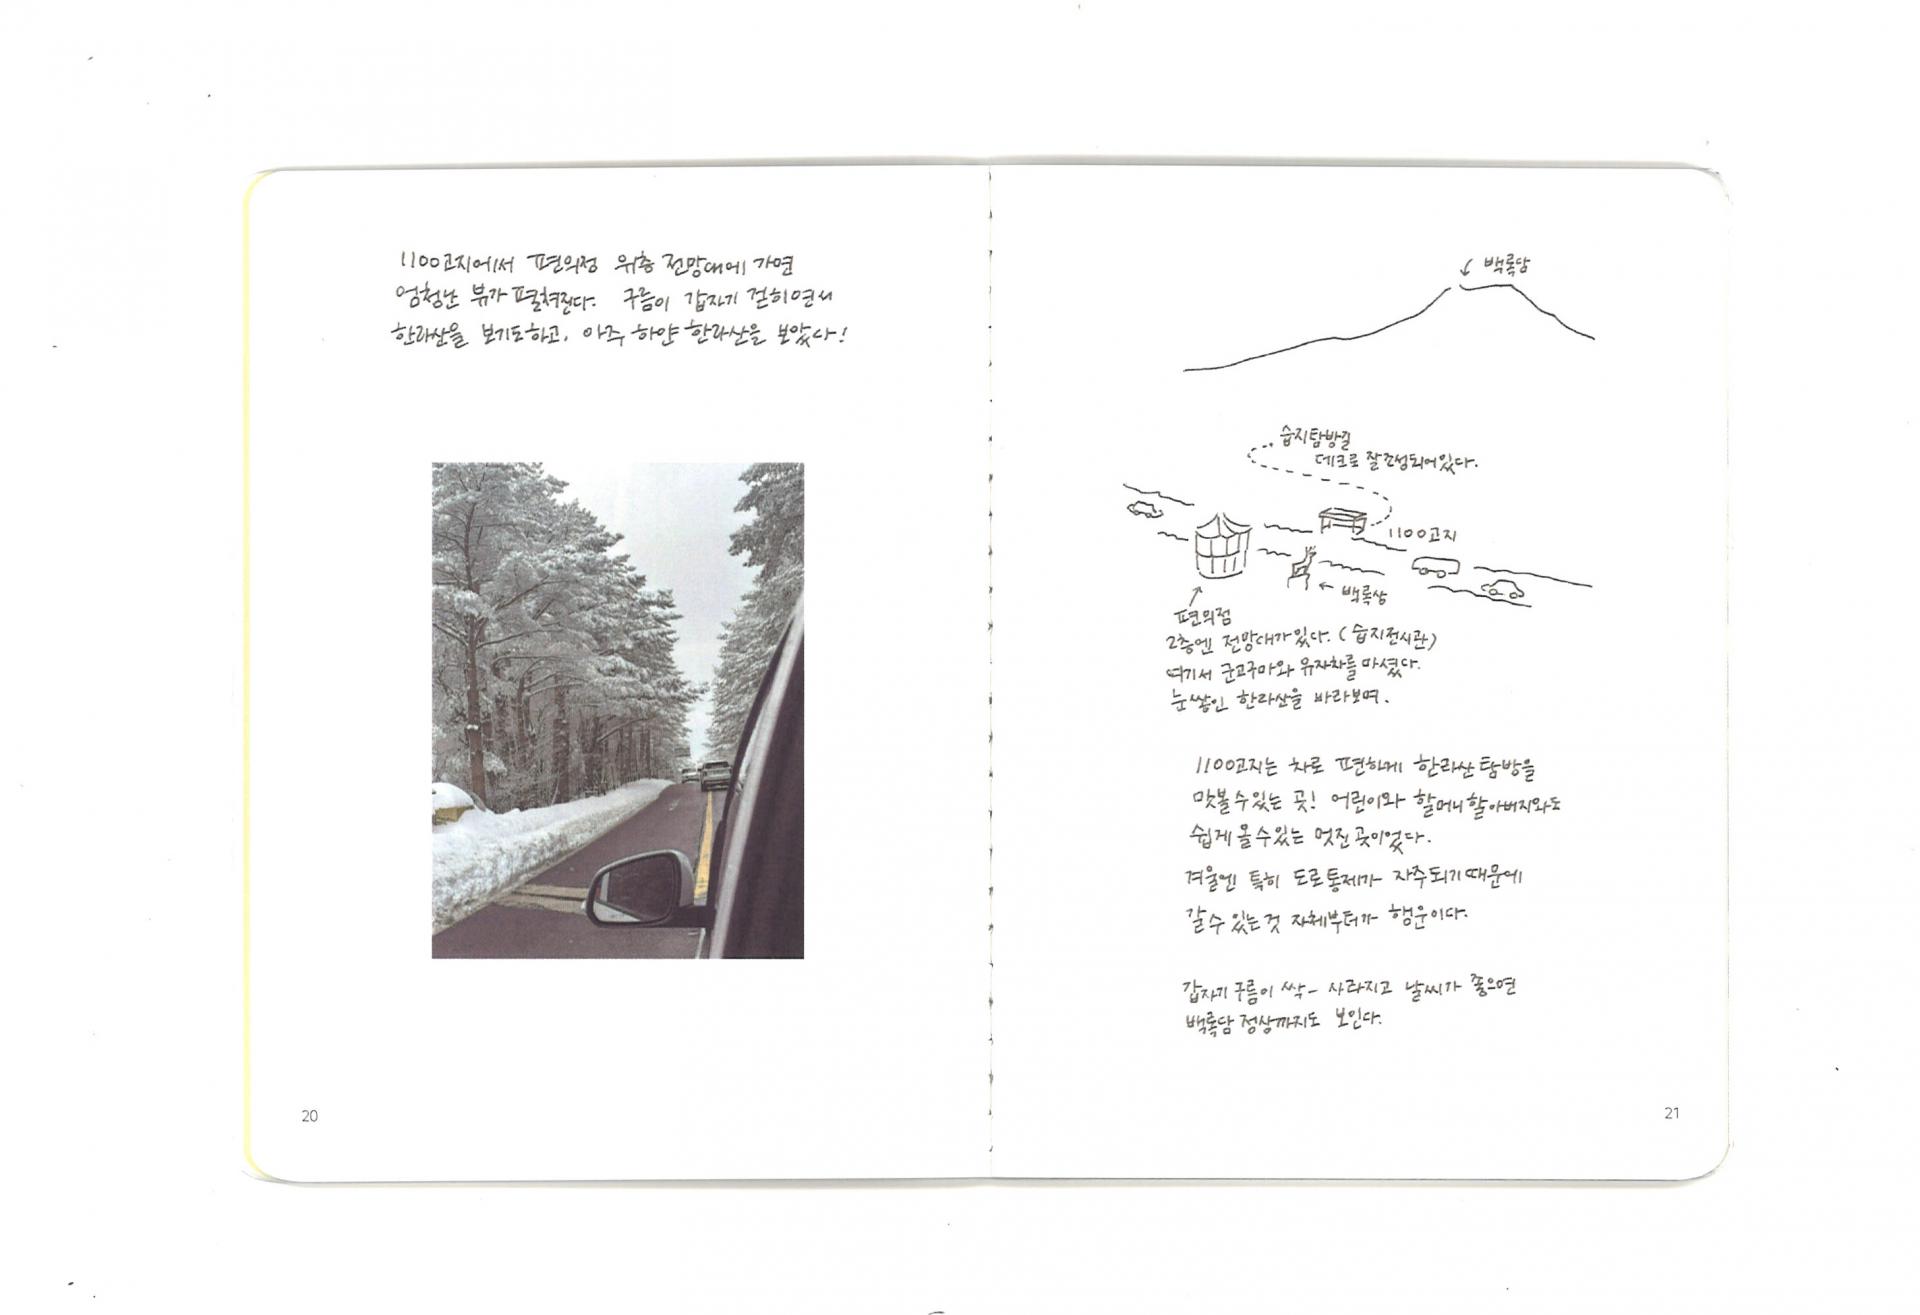 1100고지에서 편의점 위층 전망대에 가면
엄청난 뷰가 펼쳐진다. 구름이 갑자기 걷히면서
한라산을 보기도하고, 아주 하얀 한라산을 보았다!
20
백록담
습지탐방길
데크로 잘조성되어있다.
1100고지
백록상
편의점
2층엔 전망대가있다. (습지전시관)
여기서 군고구마와 유자차를 마셨다.
눈쌓인 한라산을 바라보며.
1100고지는 차로 편하게 한라산탐방을
맛볼수있는 곳! 어린이와 할머니할아버지와도
쉽게올수있는 멋진곳이었다.
겨울엔 특히 도로통제가 자주되기때문에
갈수있는것 자체부터가 행운이다.
갑자기구름이 싹- 사라지고 날씨가 좋으면
백록담정상까지도 보인다.
21